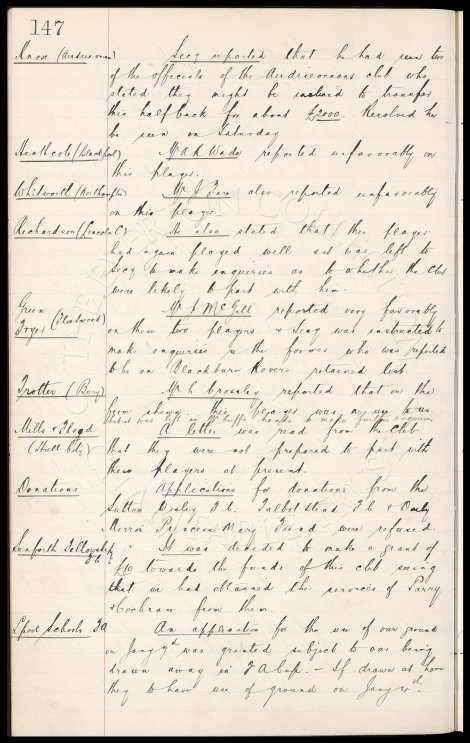 147
Knox (Airdrieonians) Secy reported that he had seen two
of the officials of the Airdrieonians club who
stated they might be inclined to transfer
this half back for about £2000. Resolved he
be seen on Saturday
Heathcote (Blackpool) Mr A R Wade reported unfavorably on
this player.
Whitworth (Northampton) Mr J also reported unfavorably
on this player.
Richardson (Lincoln C) He also stated that this player
had again played well & it was left to
Secy to make inquiries as to whether the club
were likely to part with him.
Green
Fryer (Fleetwood) Mr J McGill reported very favorably
on these two players & Secy was instructed to
make enquiries re the former who was reported
to be on Blackburn Rovers retained list
Trotter (Bury) Mr E Crossley reported that on the
form shown this player was any use to us.
and it was left in Mr Cuff's hands to make further enquiries
Mills & Flood A letter was read from the club
(Hull City) that they were not prepared to part with
these players at present.
Donations Applications for donations from the
Sutton F.C. Talbot Stead F.C. & Daily
Mirror Princess Mary Fund were refused
Seaforth Fellowship It was decided to make a grant of
F.C.
£10 towards the funds of this club seeing
that we had obtained the services of Parry
& Cochrane from them.
L'pool Schools FA An application for the use of our ground
on Jany 7th was granted subject to our being
drawn away in F A Cup. – If drawn at home
they to have use of ground on Jany